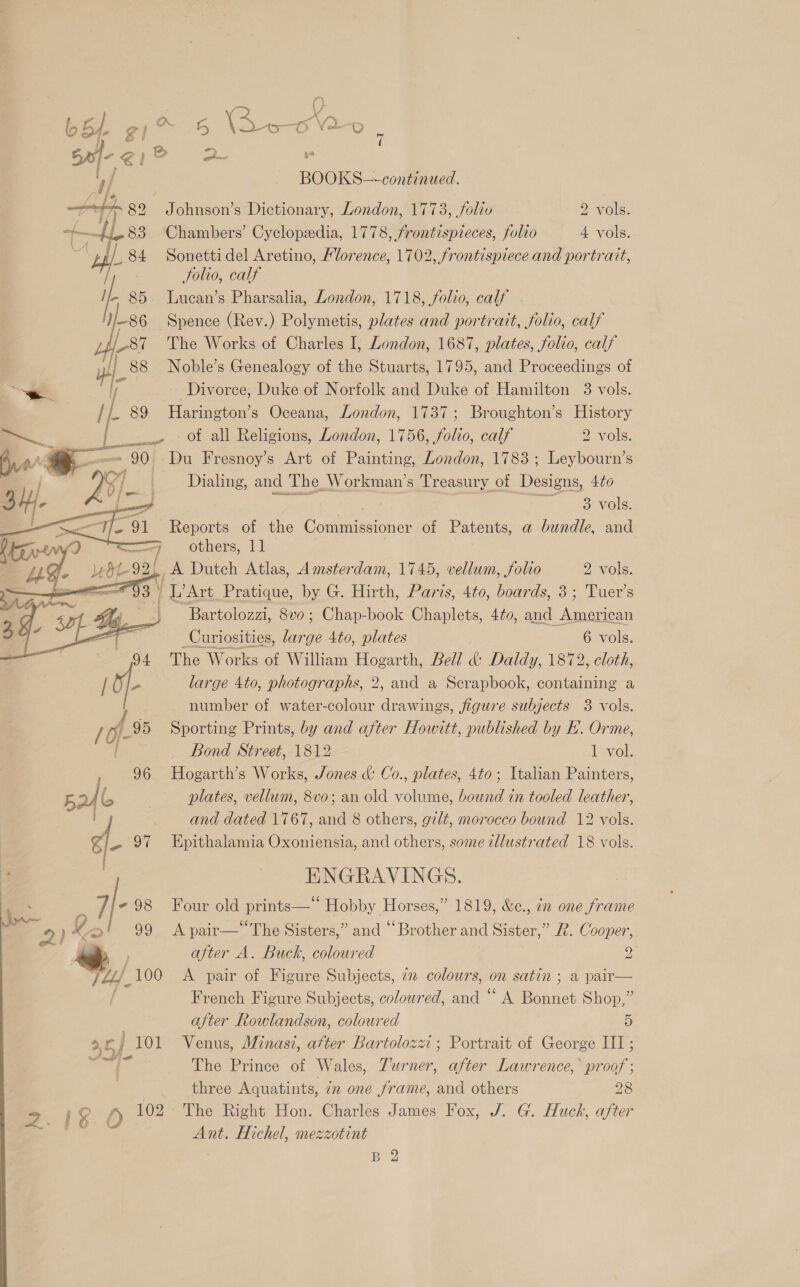 7
BOOKS—continued.
82 Johnson's Dictionary, London, 1773, folio 2 vols.
83 Chambers' Cyclopædia, 1778, frontispieces, folio 4 vols.
84 Sonetti del Aretino, Florence, 1702, frontispiece and portrait,
folio, calf
85 Lucan's Pharsalia, London, 1718, folio, calf
86 Spence (Rev.) Polymetis, plates and portrait, folio, calf
87 The Works of Charles I, London, 1687, plates, folio, calf
88 Noble's Genealogy of the Stuarts, 1795, and Proceedings of
Divorce, Duke of Norfolk and Duke of Hamilton 3 vols.
89 Harington's Oceana, London, 1737; Broughton's History
of all Religions, London, 1756, folio, calf 2 vols.
90 Du Fresnoy's Art of Painting, London, 1783; Leybourn's
Dialing, and The Workman's Treasury of Designs, 4to
3 vols.
91 Reports of the Commissioner of Patents, a bundle, and
others, 11
92 A Dutch Atlas, Amsterdam, 1745, vellum, folio 2 vols.
93 L'Art Pratique, by G. Hirth, Paris, 4to, boards, 3; Tuer's
Bartolozzi, 8vo; Chap-book Chaplets, 4to, and American
Curiosities, large 4to, plates 6 vols.
94 The Works of William Hogarth, Bell & Daldy, 1872, cloth,
large 4to, photographs, 2, and a Scrapbook, containing a
number of water-colour drawings, figure subjects 3 vols.
95 Sporting Prints, by and after Howitt, published by E. Orme,
Bond Street, 1812 1 vol.
96 Hogarth's Works, Jones & Co., plates, 4to; Italian Painters,
plates, vellum, 8vo; an old volume, bound in tooled leather,
and dated 1767, and 8 others, gilt, morocco bound 12 vols.
97 Epithalamia Oxoniensia, and others, some illustrated 18 vols.
ENGRAVINGS.
7/- 98 Four old prints—"Hobby Horses," 1819, &c., in one frame
99 A pair—"The Sisters," and "Brother and Sister," R. Cooper,
after A. Buck, coloured 2
100 A pair of Figure Subjects, in colours, on satin; a pair—
French Figure Subjects, coloured, and "A Bonnet Shop,"
after Rowlandson, coloured 5
101 Venus, Minasi, after Bartolozzi; Portrait of George III;
The Prince of Wales, Turner, after Lawrence, proof;
three Aquatints, in one frame, and others 28
2. 18. 0 102 The Right Hon. Charles James Fox, J. G. Huck, after
Ant. Hichel, mezzotint
B 2